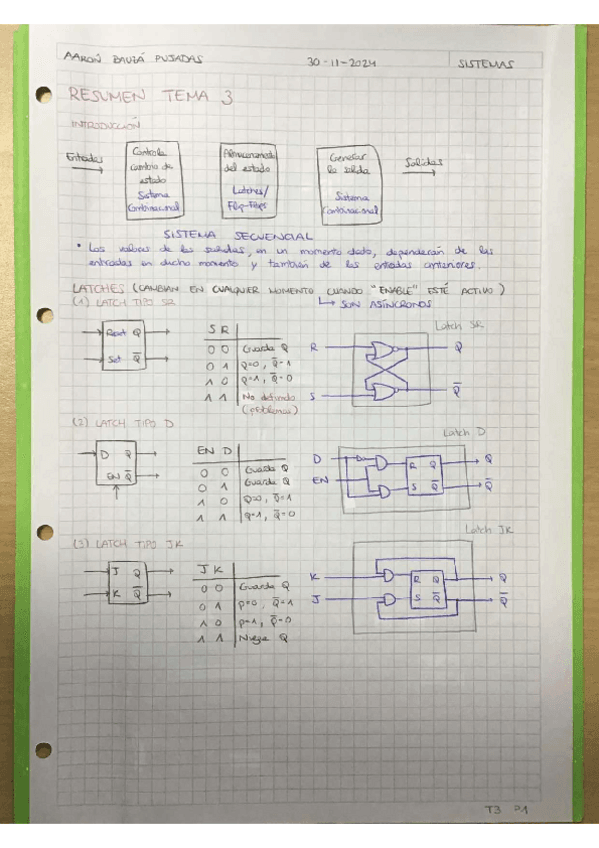 AARON BAUZÁ PUJADAS 30-11-2024 SISTEMAS
RESUMEN TEMA 3
INTRODUCCIÓN
Entradas
Controla cambio de estado
Sistema Combinacional
del estado
Latches/ Flip-Flops
Generar la salida
Sistema Combinacional
Salidas
SISTEMA SECUENCIAL
• Los valores de las salidas, en un momento dado, dependerán de las
entradas en dicho momento y también de las entradas anteriores.
LATCHES (CAMBIAN EN CUALQUIER MOMENTO CUANDO "ENABLE" ESTÉ ACTIVO)
↳ SON ASÍNCRONOS
(1) LATCH TIPO SR
Reset Q
Set Q̅
S R
0 0 Guarda Q
0 1 Q=0, Q̅=1
1 0 Q=1, Q̅=0
1 1 No definido
(problemas)
Latch SR
R Q
S Q̅
(2) LATCH TIPO D
D Q
EN Q̅
EN D
0 0 Guarda Q
0 1 Guarda Q
1 0 Q=0, Q̅=1
1 1 Q=1, Q̅=0
Latch D
D R Q Q
EN S Q̅ Q̅
(3) LATCH TIPO JK
J Q
K Q̅
J K
0 0 Guarda Q
0 1 Q=0, Q̅=1
1 0 Q=1, Q̅=0
1 1 Niega Q
Latch JK
K R Q Q
J S Q̅ Q̅
T3 P1